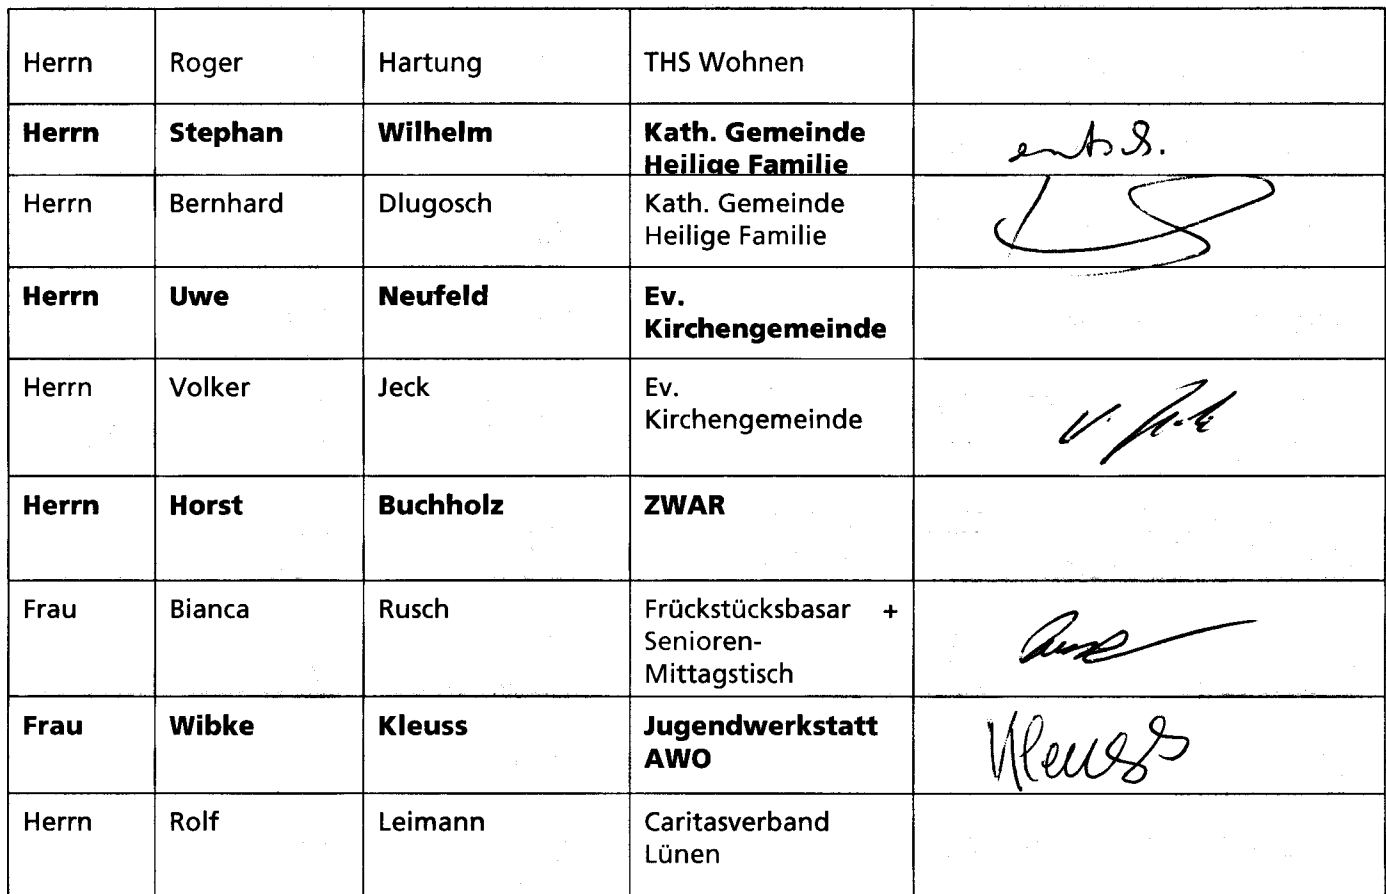 Herrn Roger Hartung THS Wohnen
Herrn Stephan Wilhelm Kath. Gemeinde entsch.
Heilige Familie
Herrn Bernhard Dlugosch Kath. Gemeinde
Heilige Familie
Herrn Uwe Neufeld Ev.
Kirchengemeinde
Herrn Volker Jeck Ev.
Kirchengemeinde V. Jeck
Herrn Horst Buchholz ZWAR
Frau Bianca Rusch Frückstücksbasar +
Senioren-
Mittagstisch
Frau Wibke Kleuss Jugendwerkstatt Kleuss
AWO
Herrn Rolf Leimann Caritasverband
Lünen